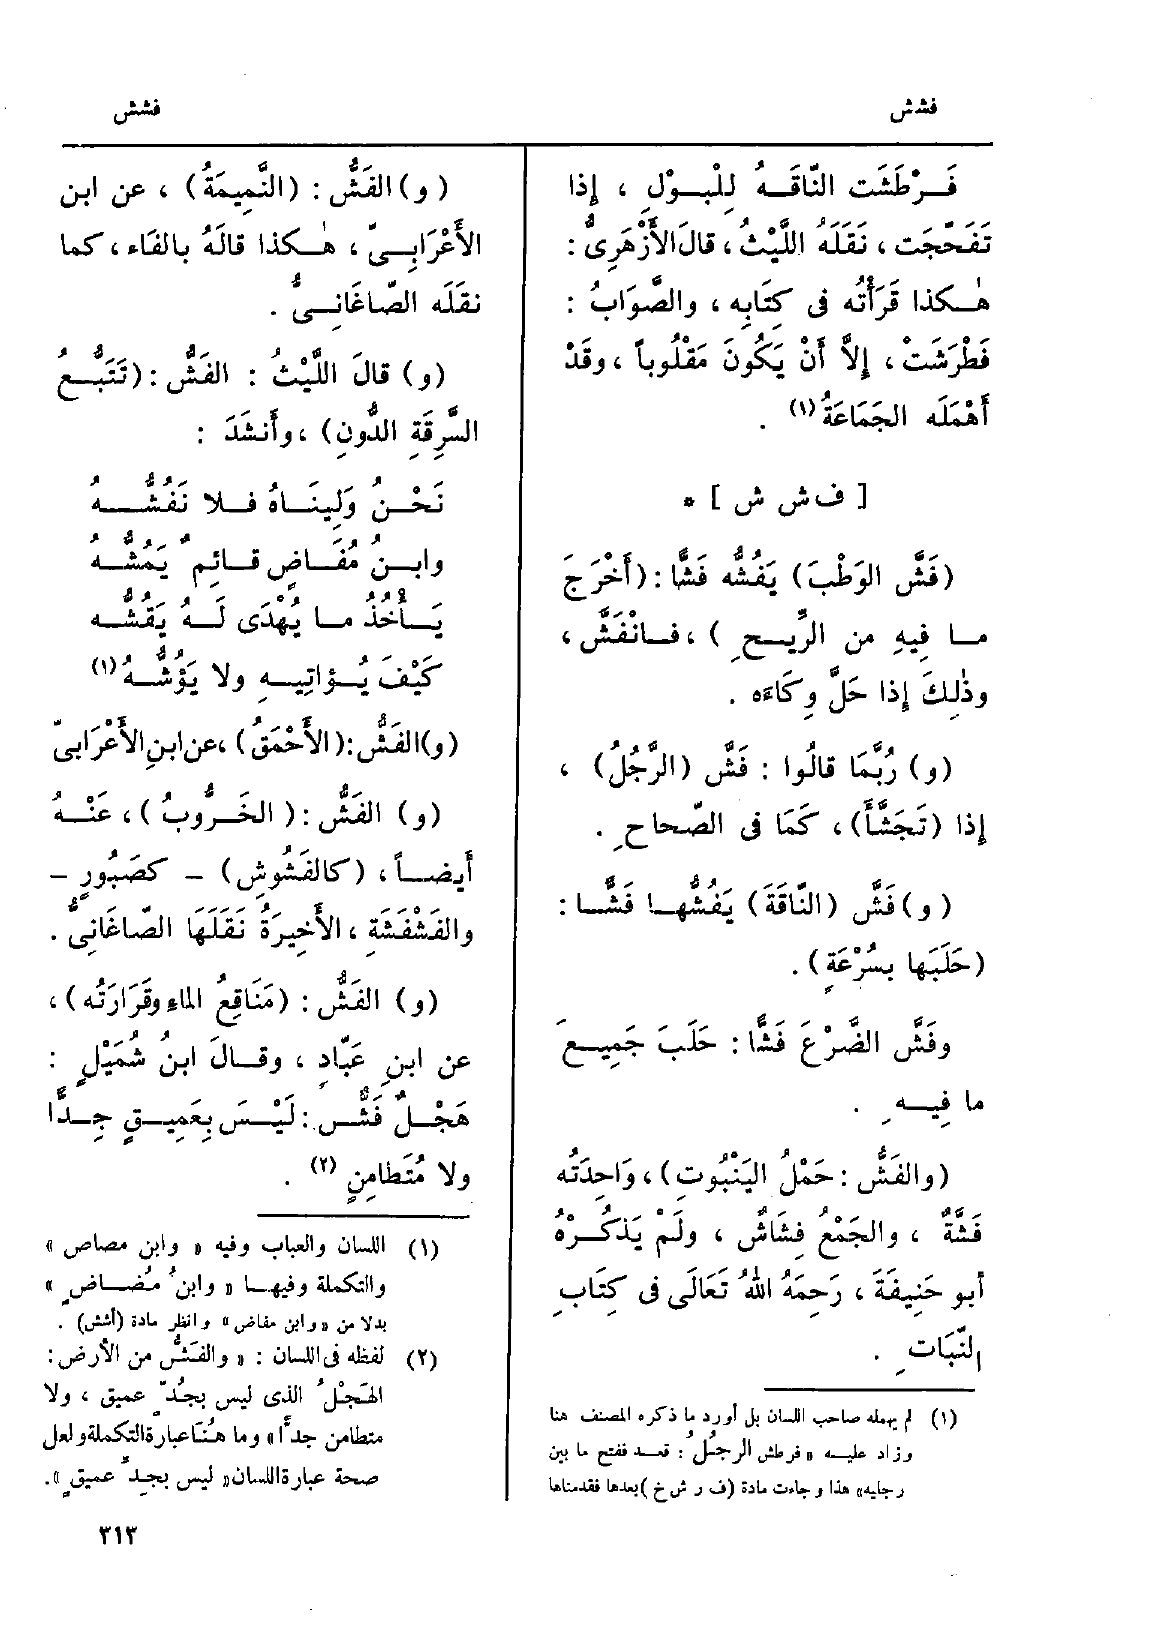 فشش
فشش
فَرْطَشَت النّاقَةُ لِلْبولِ ، إِذا
تَفَحَّجَت ، نَقَلَهُ اللَّيْثُ ، قالَ الأَزْهَرِىُّ :
هٰكذا قَرَأْتُه فى كِتَابِه ، والصَّوَابُ :
فَطْرَشَتْ ، إِلاَّ أَنْ يَكُونَ مَقْلُوباً ، وقَدْ
أَهْمَلَه الجَمَاعَةُ (١) .
[ ف ش ش ] *
(فَشَّ الوَطْبَ) يَفُشُّه فَشًّا : (أَخْرَجَ
ما فِيهِ من الرِّيحِ ) ، فانْفَشَّ ،
وذٰلِكَ إِذا حَلَّ وِكَاءَه .
(و) رُبَّمَا قالُوا : فَشَّ (الرَّجُلُ) ،
إِذا (تَجَشَّأَ) ، كَمَا فى الصّحاحِ .
( و) فَشَّ (النّاقَةَ) يَفُشُّها فَشًّا :
(حَلَبَها بسُرْعَةٍ) .
وفَشَّ الضَّرْعَ فَشًّا : حَلَبَ جَمِيعَ
ما فِيهِ .
(والفَشُّ : حَمْلُ اليَنْبُوتِ) ، وَاحِدَتُه
فَشَّةٌ ، والجَمْعُ فِشَاشٌ ، ولَمْ يَذكُرْهُ
أَبو حَنِيفَةَ ، رَحِمَهُ اللهُ تَعَالَى فى كِتَابِ
النَّبَاتِ .
(١) لم يهمله صاحب اللسان بل أورد ما ذكره المصنف هنا
وزاد عليه « فرطش الرجلُ : قعد ففتح ما بين
رجليه» هذا وجاءت مادة (ف ر ش خ) بعدها فقدمناها
( و) الفَشُّ : (النَّمِيمَةُ) ، عن ابن
الأَعْرَابِىّ ، هٰكذا قالَهُ بالفَاء ، كما
نقَلَه الصّاغَانِىُّ .
(و) قالَ اللَّيْثُ : الفَشُّ : (تَتَبُّعُ
السَّرِقَةِ الدُّونِ) ، وأَنشَدَ :
نَحْنُ وَلِينَاهُ فلا نَفُشُّهُ
وابنُ مُفَاضٍ قائِمٌ يَمُشُّهُ
يَأْخُذُ ما يُهْدَى لَهُ يَقُشُّه
كَيْفَ يُؤاتِيهِ ولا يَؤُشُّهُ (١)
(و) الفَشُّ : (الأَحْمَقُ) ، عن ابنِ الأَعْرَابىّ
(و) الفَشُّ : ( الخَرُّوبُ ) ، عَنْهُ
أَيضاً ، (كالفَشُوشِ) – كصَبُورٍ –
والفَشْفَشَةِ ، الأَخِيرَةُ نَقَلَهَا الصّاغَانىُّ .
(و) الفَشُّ : (مَنَاقِعُ الماءِ وقَرَارَتُه) ،
عن ابنِ عَبّادٍ ، وقالَ ابنُ شُمَيْلٍ :
هَجْلٌ فَشٌّ : لَيْسَ بِعَمِيقٍ جِدًّا
ولا مُتَطامِنٍ (٢) .
(١) اللسان والعباب وفيه « وابن مصاص »
والتكملة وفيها « وابنُ مُضاضٍ »
بدلا من « وابن مفاض» وانظر مادة (أشش) .
(٢) لفظه فى اللسان : « والفَشُّ من الأرض :
الهَجْلُ الذى ليس بجُدٍّ عميق ، ولا
متطامن جدًّا» وما هنا عبارة التكملة ولعل
صحة عبارة اللسان « ليس بجِدِّ عميقٍ » .
٣١٣